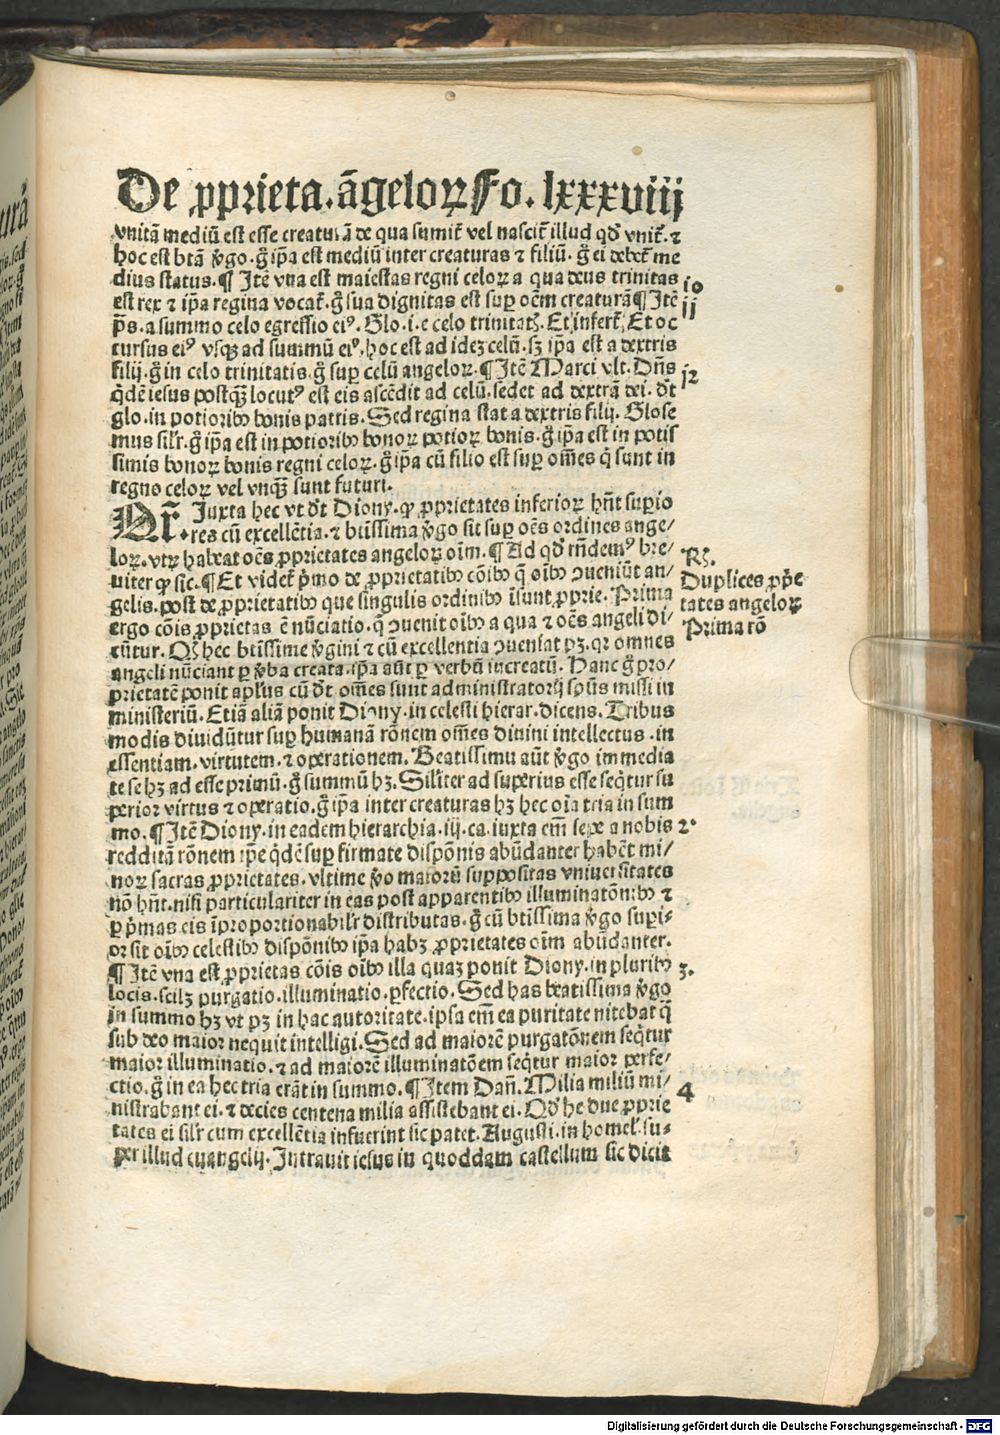 De ꝓprieta. ãgeloꝝ Fo. lxxxviiij
vnitã mediũ est esse creaturã de qua sumit᷑ vel nascit᷑ illud qđ vnit᷑. ⁊
hoc est btã v̾go. g̊ ip̃a est mediũ inter creaturas ⁊ filiũ. g̊ ei debet᷑ me
dius status. ¶ Itẽ vna est maiestas regni celoꝝ a qua deus trinitas
est rex ⁊ ip̃a regina vocat᷑. g̊ sua dignitas est suꝑ oẽm creaturã ¶ Itẽ
p̃s. a summo celo egressio eiꝰ. Glo. i. e celo trinitatꝭ. Et infert᷑. Et oc
cursus eiꝰ vsqꝫ ad summũ eiꝰ. hoc est ad ideꝫ celũ. sꝫ ip̃a est a dextris
filij. g̊ in celo trinitatis. g̊ suꝑ celũ angeloꝝ. ¶ Itẽ Marci vlt. Dñs
q̇dẽ iesus postq̃ꝫ locutꝰ est eis ascẽdit ad celũ. sedet ad dextrã dei. dt̃
glo. in potioribꝰ bonis patris. Sed regina stat a dextris filij. Glose
mus sil̃r. g̊ ip̃a est in potioribꝰ bonoꝝ potioꝝ bonis. g̊ ip̃a est in potis
simis bonoꝝ bonis regni celoꝝ. g̊ ip̃a cũ filio est suꝑ om̃es q̃ sunt in
regno celoꝝ vel vnq̃ꝫ sunt futuri.
Iuxta hec vt dt̃ Diony. ꝙ ꝓprietates inferioꝝ hñt suꝑio
res cũ excellẽtia. ⁊ btĩssima v̾go sit suꝑ oẽs ordines ange/
loꝝ. vtꝝ habeat oẽs ꝓprietates angeloꝝ oĩm. ¶ Ad qđ rñdemꝰ bre/
uiter ꝙ sic. ¶ Et videt᷑ p̃mo de ꝓprietatibꝰ cõibꝰ q̃ oĩbꝰ ꝯueniũt an/
gelis. post de ꝓprietatibꝰ que singulis ordinibꝰ ĩsunt ꝓprie. Prima
ergo cõis ꝓprietas ẽ nũciatio. q̃ ꝯuenit oĩbꝰ a qua ⁊ oẽs angeli di/
cũtur. Qđ hec btĩssime v̾gini ⁊ cũ excellentia ꝯueniat pꝫ. qꝛ omnes
angeli nũciant ꝑ v̾ba creata. ip̃a aũt ꝑ verbũ increatũ. Hanc g̊ pro/
prietatẽ ponit apl̃us cũ dt̃ om̃es sunt administratorij spũs missi in
ministeriũ. Etiã aliã ponit Diony. in celesti hierar. dicens. Tribus
modis diuidũtur suꝑ humanã rõnem om̃es diuini intellectus. in
essentiam. virtutem. ⁊ operationem. Beatissimu aũt v̾go immedia
te se hꝫ ad esse primũ. g̊ summũ hꝫ. Sil̃iter ad superius esse seq̇tur su
perior virtus ⁊ operatio. g̊ ip̃a inter creaturas hꝫ hec oĩa tria in sum
mo. ¶ Itẽ Diony. in eadem hierarchia. iij. ca. iuxta em̃ sepe a nobis
redditã rõnem ip̃e q̇dẽ suꝑ firmate dispõnis abũdanter habẽt mi/
noꝝ sacras ꝓprietates. vltime v̾o maiorũ suppositas vniuersitates
nõ hñt. nisi particulariter in eas post apparentibꝰ illuminatõnibꝰ ⁊
ꝑ p̃mas eis ĩproportionabil̃r distributas. g̊ cũ btĩssima v̾go suꝑi/
or sit oĩbꝰ celestibꝰ dispõnibꝰ ip̃a habꝫ ꝓprietates oĩm abũdanter.
¶ Itẽ vna est ꝓprietas cõis oĩbꝰ illa quaꝫ ponit Diony. in pluribꝰ
locis. scilꝫ purgatio. illuminatio. ꝑfectio. Sed has beatissima v̾go
in summo hꝫ vt pꝫ in hac autoritate. ipsa em̃ ea puritate nitebat q̃
sub deo maior nequit intelligi. Sed ad maiorẽ purgatõnem seq̇tur
maior illuminatio. ⁊ ad maiorẽ illuminatõem seq̇tur maior perfe/
ctio. g̊ in ea hec tria erãt in summo. ¶ Item Dañ. Milia miliũ mi/
nistrabant ei. ⁊ decies centena milia assistebant ei. Qđ he due ꝓprie
tates ei sil̃r cum excellẽtia infuerint sic patet. Augusti. in homel̃. su/
per illud euangelij. Intrauit iesus in quoddam castellum sic dicit
io
ij
i2
R̃.
Duplices ꝓp̃e
tates angeloꝝ
Prima rõ
2ᵃ
3.
4
Digitalisierung gefördert durch die Deutsche Forschungsgemeinschaft - DFG